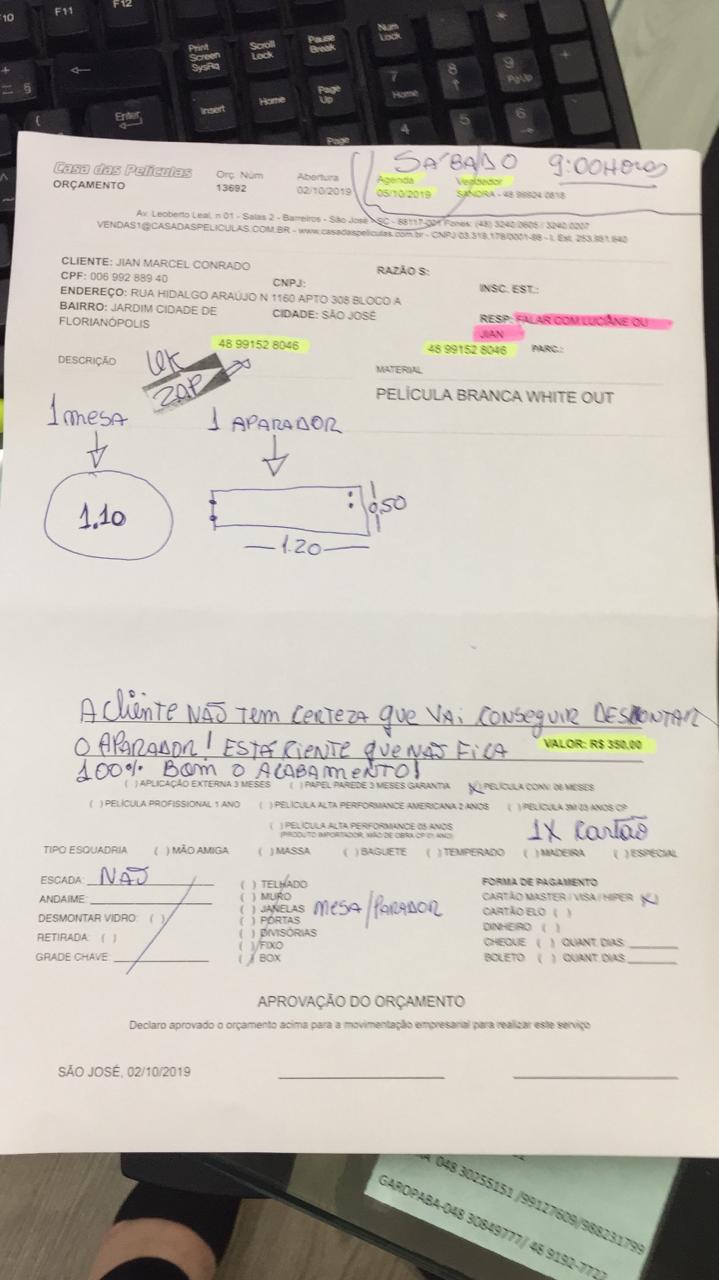 F10 F11 F12
Print Screen SysRq
Scroll Lock
Pause Break
Num Lock
Insert Home Page Up
7 Home 8 9 PgUp
Enter
4 5 6
Page
SÁBADO 9:00HORAS
Casa das Películas
ORÇAMENTO
Orç. Núm
13692
Abertura
02/10/2019
Agenda
05/10/2019
Vendedor
SANDRA - 48 99624 0818
Av. Leoberto Leal, n 01 - Salas 2 - Barreiros - São José - SC - 88117-001 Fones: (48) 3240.0605 / 3240.0207
VENDAS1@CASADASPELICULAS.COM.BR - www.casadaspeliculas.com.br - CNPJ 03.318.178/0001-88 - I. Est. 253.881.840
CLIENTE: JIAN MARCEL CONRADO
RAZÃO S:
CPF: 006 992 889 40
CNPJ:
INSC. EST.:
ENDEREÇO: RUA HIDALGO ARAÚJO N 1160 APTO 308 BLOCO A
BAIRRO: JARDIM CIDADE DE FLORIANÓPOLIS
CIDADE: SÃO JOSÉ
RESP: FALAR COM LUCIANE OU JIAN
48 99152 8046
48 99152 8046
PARC.:
DESCRIÇÃO
ZAP
MATERIAL
PELÍCULA BRANCA WHITE OUT
1 MESA
1 APARADOR
1.10
0,50
1.20
A Cliente NÃO TEM CERTEZA que VAI CONSEGUIR DESMONTAR
O APARADOR! ESTÁ CIENTE que NÃO FICA
VALOR: R$ 350,00
100% BOM O ACABAMENTO!
( ) APLICAÇÃO EXTERNA 3 MESES ( ) PAPEL PAREDE 3 MESES GARANTIA (X) PELÍCULA CONV. 06 MESES
( ) PELÍCULA PROFISSIONAL 1 ANO ( ) PELÍCULA ALTA PERFORMANCE AMERICANA 2 ANOS ( ) PELÍCULA 3M 03 ANOS CP
( ) PELÍCULA ALTA PERFORMANCE 05 ANOS
(PRODUTO IMPORTADOR, MÃO DE OBRA CP 01 ANO)
1X Cartão
TIPO ESQUADRIA ( ) MÃO AMIGA ( ) MASSA ( ) BAGUETE ( ) TEMPERADO ( ) MADEIRA ( ) ESPECIAL
ESCADA: NÃO
ANDAIME:
DESMONTAR VIDRO: ( )
RETIRADA: ( )
GRADE CHAVE:
( ) TELHADO
( ) MURO
( ) JANELAS
( ) PORTAS
( ) DIVISÓRIAS
( ) FIXO
( ) BOX
MESA/PARADOR
FORMA DE PAGAMENTO
CARTÃO MASTER / VISA / HIPER (X)
CARTÃO ELO ( )
DINHEIRO ( )
CHEQUE ( ) QUANT. DIAS:
BOLETO ( ) QUANT. DIAS:
APROVAÇÃO DO ORÇAMENTO
Declaro aprovado o orçamento acima para a movimentação empresarial para realizar este serviço
SÃO JOSÉ, 02/10/2019
048 30255151 /99127609/988231799
GAROPABA-048 30849777/ 48 9192-7722